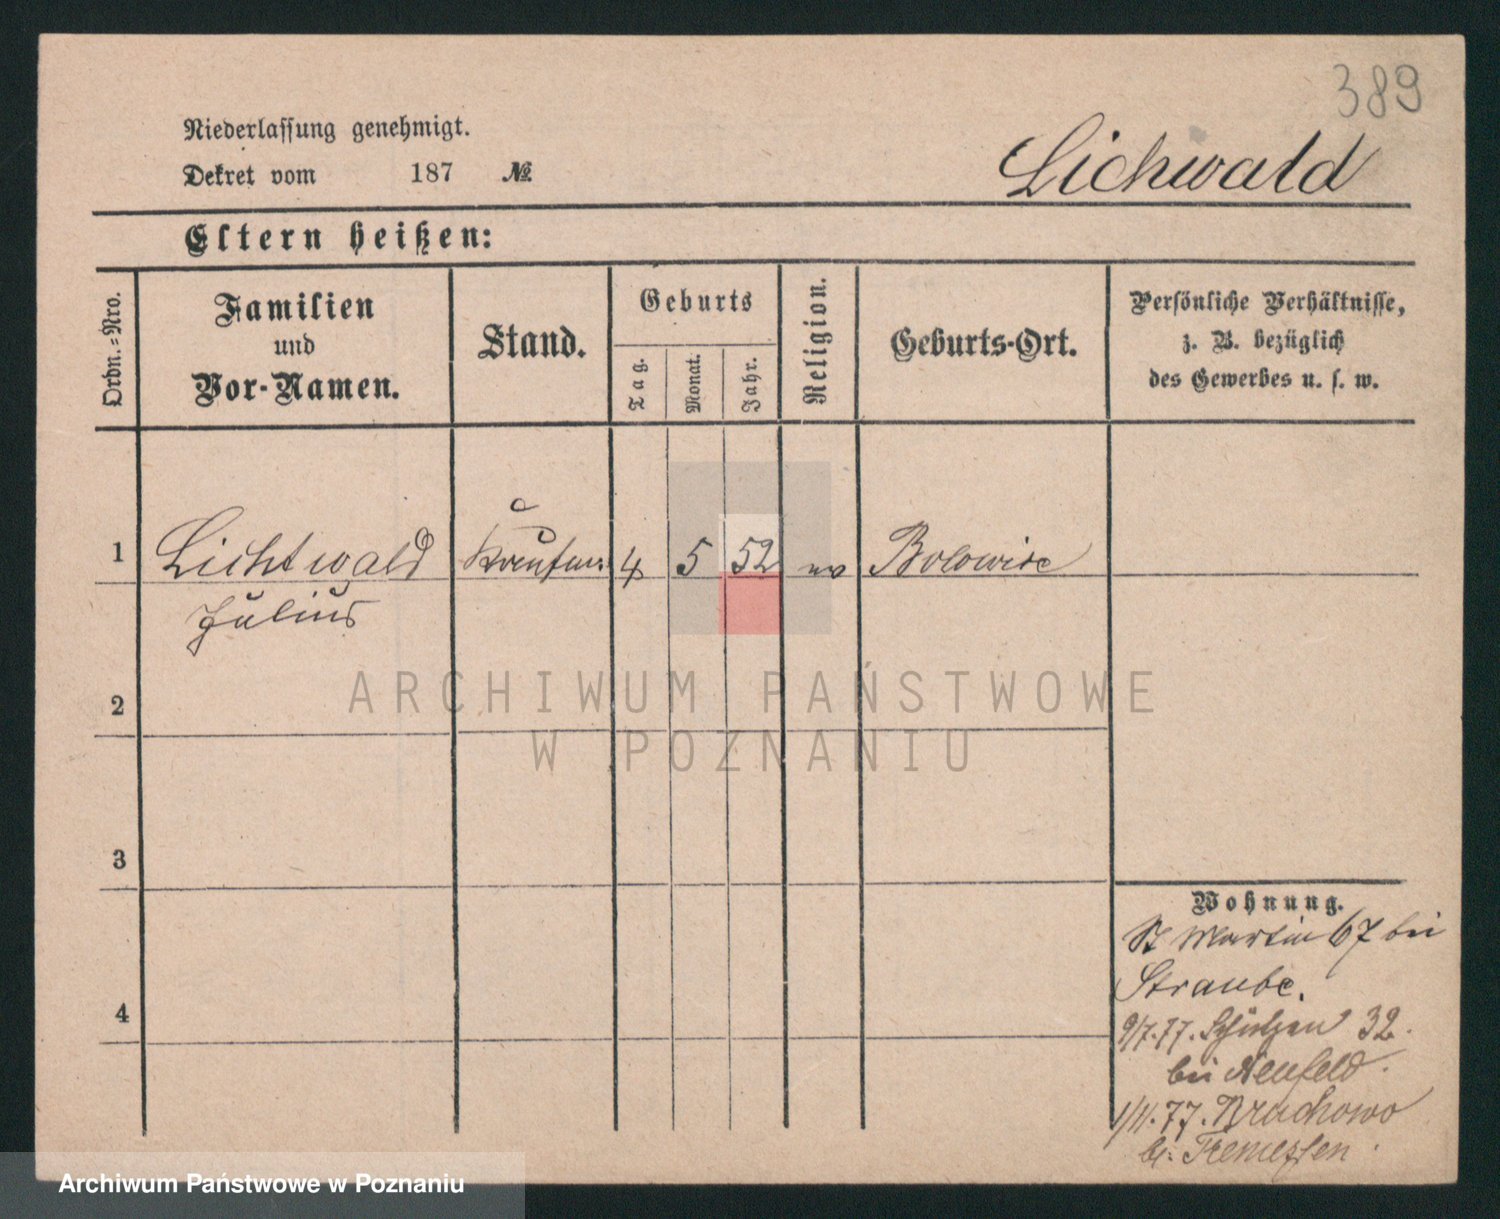 389
Niederlassung genehmigt.
Dekret vom 187 №
Lichwald
Eltern heißen:
Ordn.-Nro.
Familien
und
Vor-Namen.
Stand.
Geburts
Tag.
Monat.
Jahr.
Religion.
Geburts-Ort.
Persönliche Verhältnisse,
z. B. bezüglich
des Gewerbes u. s. w.
1 Lichtwald 4 5 52
Julius
2
3
4
Wohnung.
St Martin 67 bei
Straube.
9/7.77. Schützen 32.
bei Neufeld.
1/11.77. Bruchowo
b. Tremessen.
ARCHIWUM PAŃSTWOWE
W POZNANIU
Archiwum Państwowe w Poznaniu